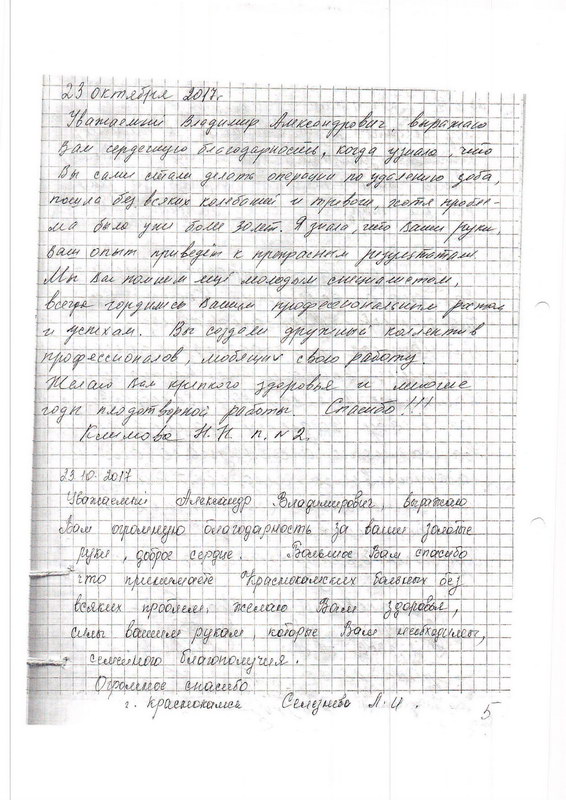 23 октября 2017г.
Уважаемый Владимир Александрович, выражаю
Вам сердечную благодарность, когда узнала, что
Вы сами стали делать операции по удалению зоба,
пошла без всяких колебаний и тревоги, хотя пробле-
ма была уже боле 30 лет. Я знала, что Ваши руки,
Ваш опыт приведёт к прекрасным результатам
Мы Вас помним ещё молодым специалистом,
всегда гордились Вашим профессиональным ростом
и успехам. Вы создали дружный коллектив
профессионалов, любящих свою работу.
Желаю Вам крепкого здоровья и многие
годы плодотворной работы. Спасибо!!!
Климова Н.Н. п. №2.
23.10.2017
Уважаемый Александр Владимирович, выражаю
Вам огромную благодарность за ваши золотые
руки, доброе сердце. Большое Вам спасибо
что принимаете Краснокамских больных без
всяких проблем, желаю Вам здоровья,
силы вашим рукам, которые Вам необходимы,
семейного благополучия.
Огромное спасибо
г. Краснокамск Селезнева Л.И.
5